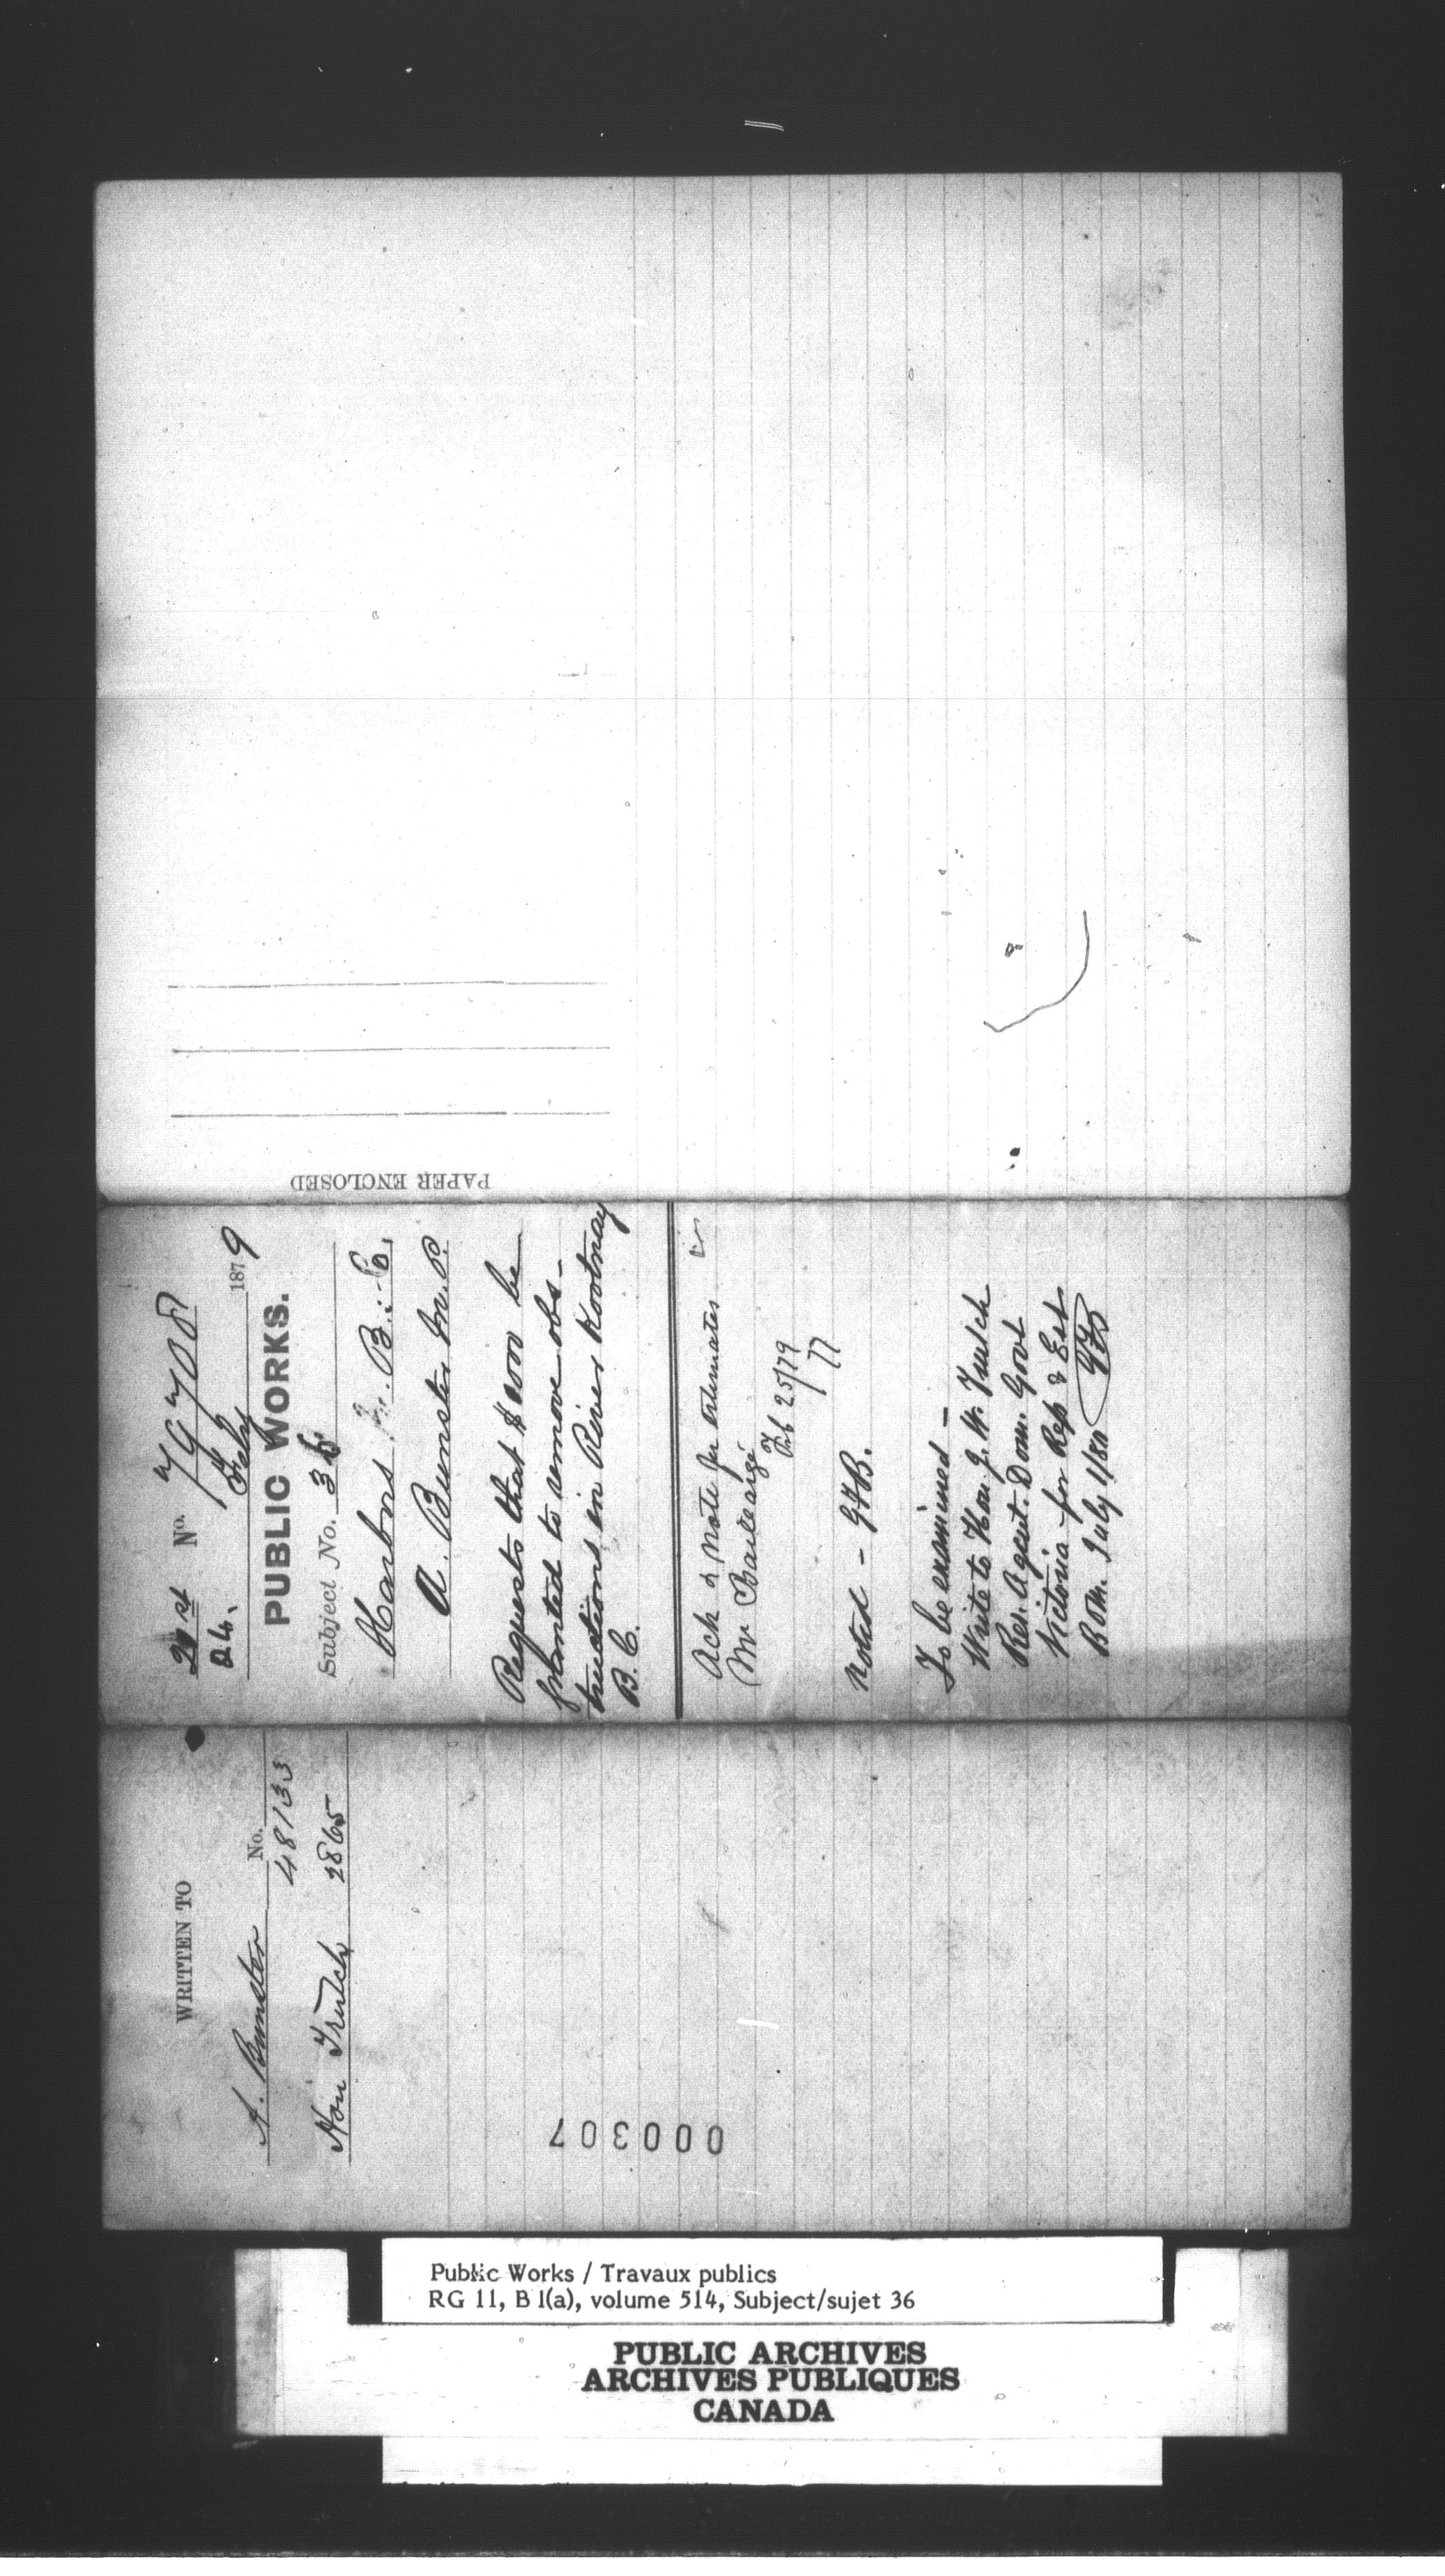 21st No. 79708
24. Feby 1879
PUBLIC WORKS.
Subject No. 36
Harbors B.C.
A. Bunster M.P.
Requests that $ be
granted to remove obs-
tructions in River Kootnay
B.C.
Ack & Note for Estimates
Mr Baillairgé
Feb 25/79
Noted - GFB.
To be examined -
Write to Hon. J. W. Trutch
Res. Agent. Dom. Govt
Victoria for Rep & Est
July 1/80
WRITTEN TO
No.
A. Bunster 48133
Hon Trutch 2865
PAPER ENCLOSED
000307
Public Works / Travaux publics
RG 11, B 1(a), volume 514, Subject/sujet 36
PUBLIC ARCHIVES
ARCHIVES PUBLIQUES
CANADA